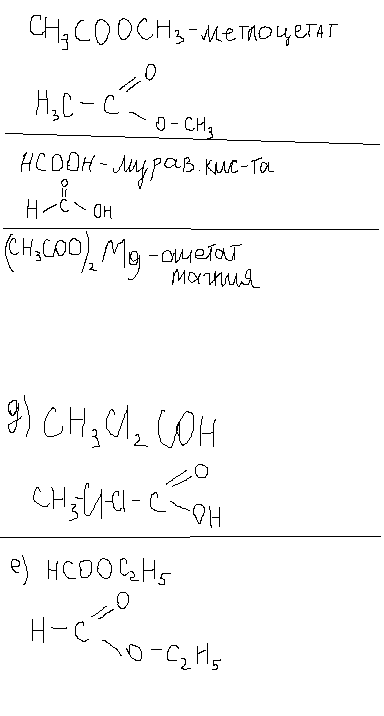 CH₃COOCH₃-метлоцетат
O
H₃C-C
O-CH₃
HCOOH-мурав.кис-та
O
H C OH
(CH₃COO)₂Mg-ацетат
магния
д) CH₃Cl₂COH
O
CH₃-Cl-Cl-C
OH
е) HCOOC₂H₅
O
H-C
O-C₂H₅